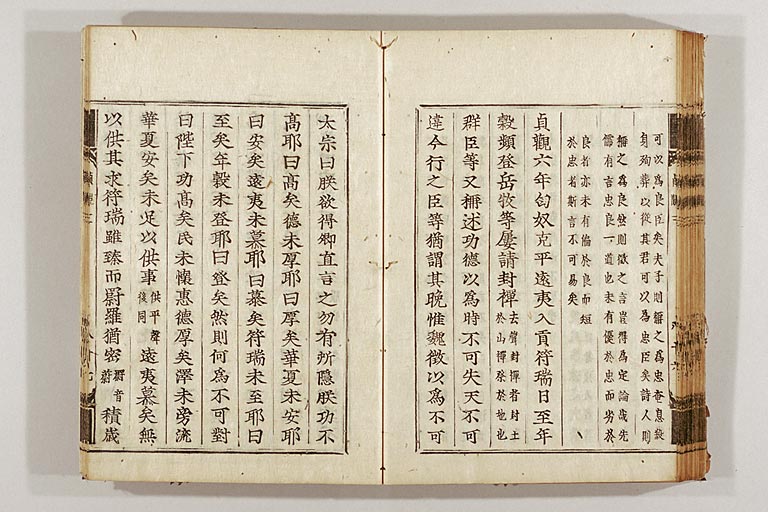 可以為良臣矣夫子則稱之為忠奄息殺
身殉葬以從其君可以為忠臣矣詩人則
稱之為良然則徵之言豈得為定論哉先
儒有言忠良一道也未有優於忠而劣於
良者亦未有偏於良而短
於忠者斯言不可易矣
貞觀六年匈奴克平遠夷入貢符瑞日至年
穀頻登岳牧等屢請封禪去聲封禪者封土於山禪祭於地也
群臣等又稱述功德以為時不可失天不可
違今行之臣等猶謂其晚惟魏徵以為不可
太宗曰朕欲得卿直言之勿有所隱朕功不
高耶曰高矣德未厚耶曰厚矣華夏未安耶
曰安矣遠夷未慕耶曰慕矣符瑞未至耶曰
至矣年穀未登耶曰登矣然則何為不可對
曰陛下功高矣民未懷惠德厚矣澤未旁流
華夏安矣未足以供事供平聲後同遠夷慕矣無
以供其求符瑞雖臻而罻羅猶密罻音蔚積歲